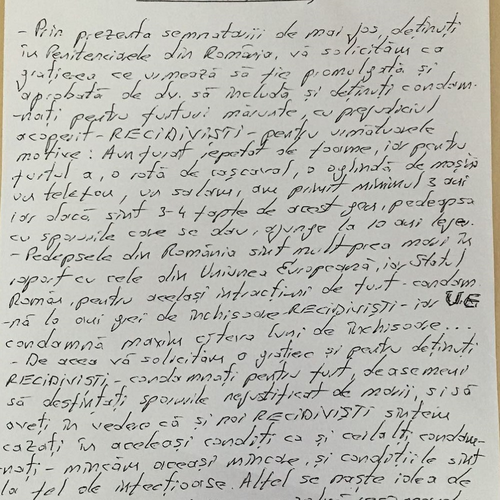 - Prin prezenta semnatarii de mai jos, deținuți
în Penitenciarele din România, vă solicităm ca
grațierea ce urmează să fie promulgată și
aprobată de dv. să includă și deținuți condam-
nați pentru furturi mărunte, cu prejudiciul
acoperit - RECIDIVIȘTI - pentru următoarele
motive: Am furat repetat de foame, iar pentru
furtul a, o roată de cașcaval, o oglindă de mașină
un telefon, un salam, am primit minimul 3 ani
iar dacă sînt 3-4 fapte de acest gen, pedeapsa
cu sporurile care se dau, ajunge la 10 ani lejer.
- Pedepsele din România sînt mult prea mari în
raport cu cele din Uniunea Europeană, iar Statul
Român, pentru același infracțiuni de furt - condam
nă la ani grei de închisoare RECIDIVIȘTI - iar UE
condamnă maxim cîteva luni de închisoare...
- De aceea vă solicităm o grațiere și pentru deținuți
RECIDIVIȘTI - condamnați pentru furt, deasemeni
să desfințați sporurile nejustificat de mari, si să
aveți în vedere că și noi RECIDIVIȘTI sîntem
cazați în aceleași condiți ca și ceilalți condam-
nați - mîncăm aceași mîncare, și condițiile sînt
la fel de infecțioase. Altfel se naște ideea de